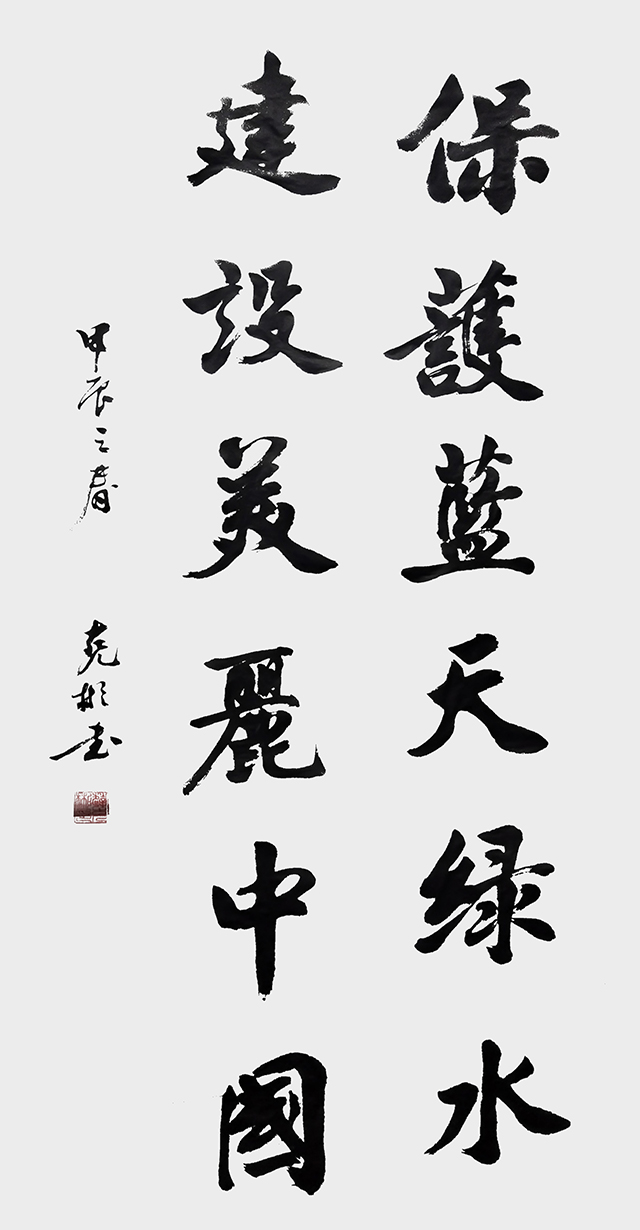 保護藍天绿水
建設美麗中國
甲辰之春
克彬书